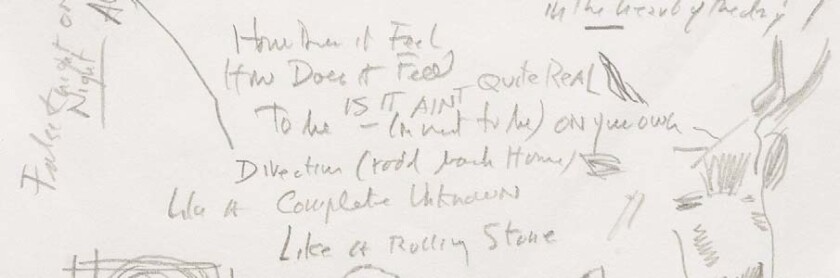 in the beauty of the day
How Does it Feel
How Does it Feel
Quite REAL
IS IT AINT
To be — (or not to be) ON your own
Direction (road back Home)
Like a Complete Unknown
Like a Rolling Stone
Night